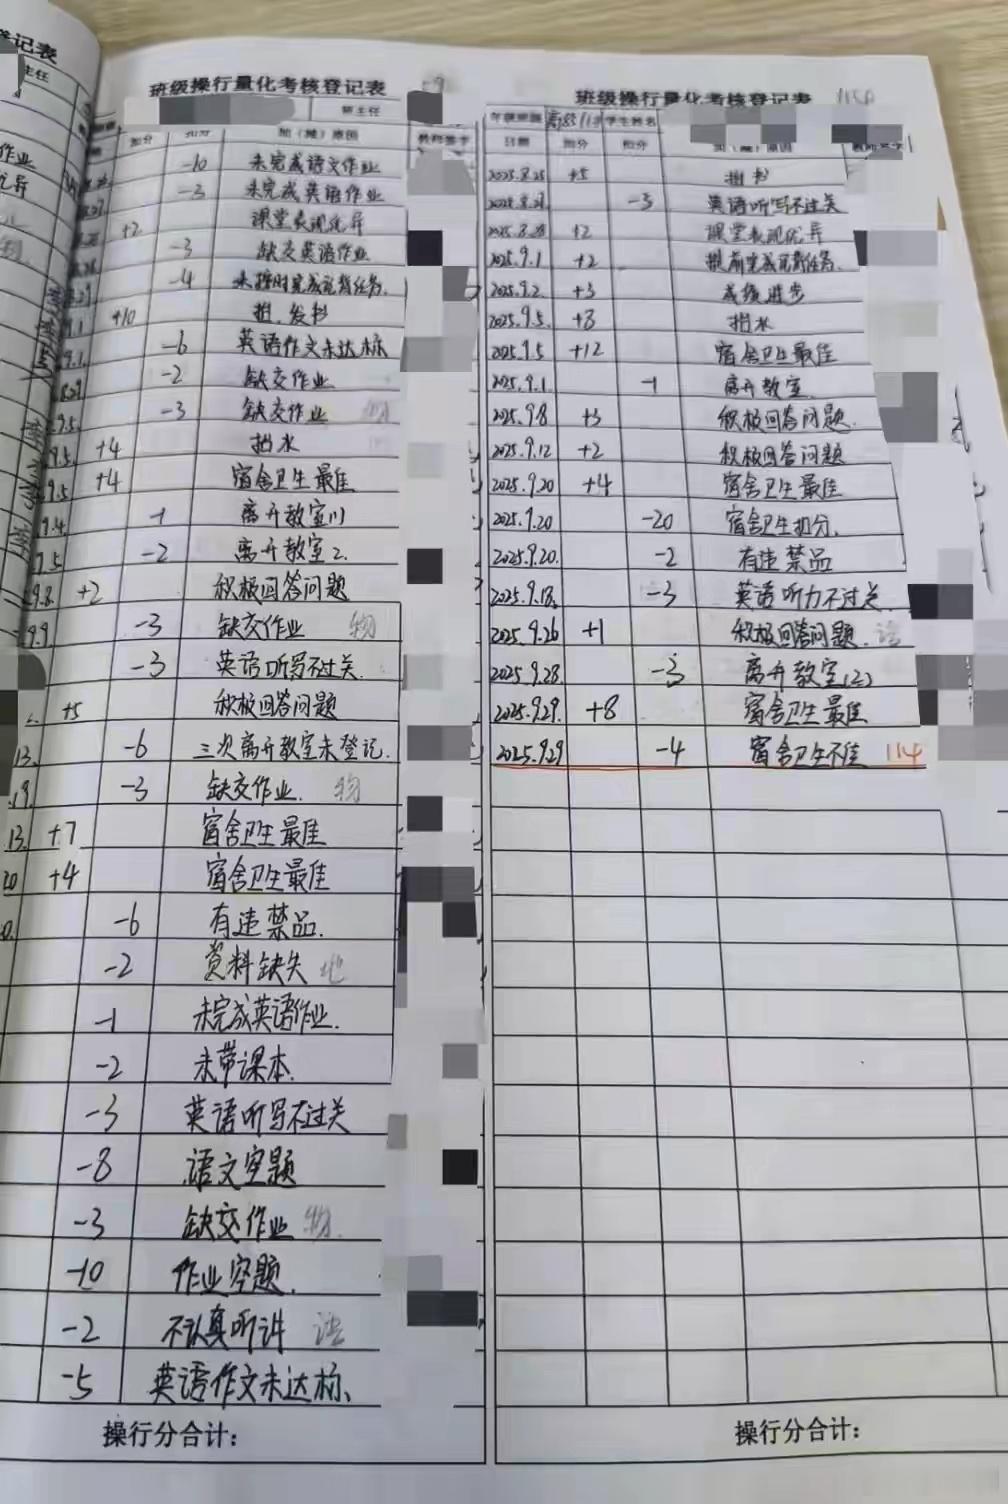 记表
主任
作业
优异
班级操行量化考核登记表
班主任
加分 扣分 加（减）原因 教师签字
-10 未完成语文作业
-3 未完成英语作业
+2 课堂表现优异
-3 缺交英语作业
-4 未按时完成背任务.
9.1 +10 担.发书
9.1. -6 英语作文未达标
8.29 -2 缺交作业
9.5 -3 缺交作业 物
9.5. +4 抬水
9.5 +4 宿舍卫生最佳
9.4. -1 离开教室(1)
9.5 -2 离开教室2.
9.8. +2 积极回答问题
9.9. -3 缺交作业 物
-3 英语听写不过关.
+5 积极回答问题
13. -6 三次离开教室未登记.
.19. -3 缺交作业. 物
13. +7 宿舍卫生最佳
20 +4 宿舍卫生最佳
-6 有违禁品.
-2 资料缺失 地
-1 未完成英语作业.
-2 未带课本.
-3 英语听写不过关
-8 语文空题
-3 缺交作业 物.
-10 作业空题.
-2 不认真听讲
-5 英语作文未达标、
操行分合计：
班级操行量化考核登记表
年级班级 学生姓名
日期 加分 扣分 加（减）原因 教师签字
2025.8.25 +5 担书
2025.8.27. -3 英语听写不过关
2025.8.28 +2 课堂表现优异
2025.9.1 +2 提前完成背任务.
2025.9.2. +3 成绩进步
2025.9.5. +8 抬水
2025.9.5 +12 宿舍卫生最佳
2025.9.1. -1 离开教室.
2025.9.8 +3 积极回答问题.
2025.9.12 +2 积极回答问题
2025.9.20 +4 宿舍卫生最佳
2025.9.20 -20 宿舍卫生扣分.
2025.9.20. -2 有违禁品
2025.9.18. -3 英语听力不过关.
2025.9.26 +1 积极回答问题.
2025.9.28. -3 离开教室(2)
2025.9.29. +8 宿舍卫生最佳
2025.9.29 -4 宿舍卫生不佳 114
操行分合计：